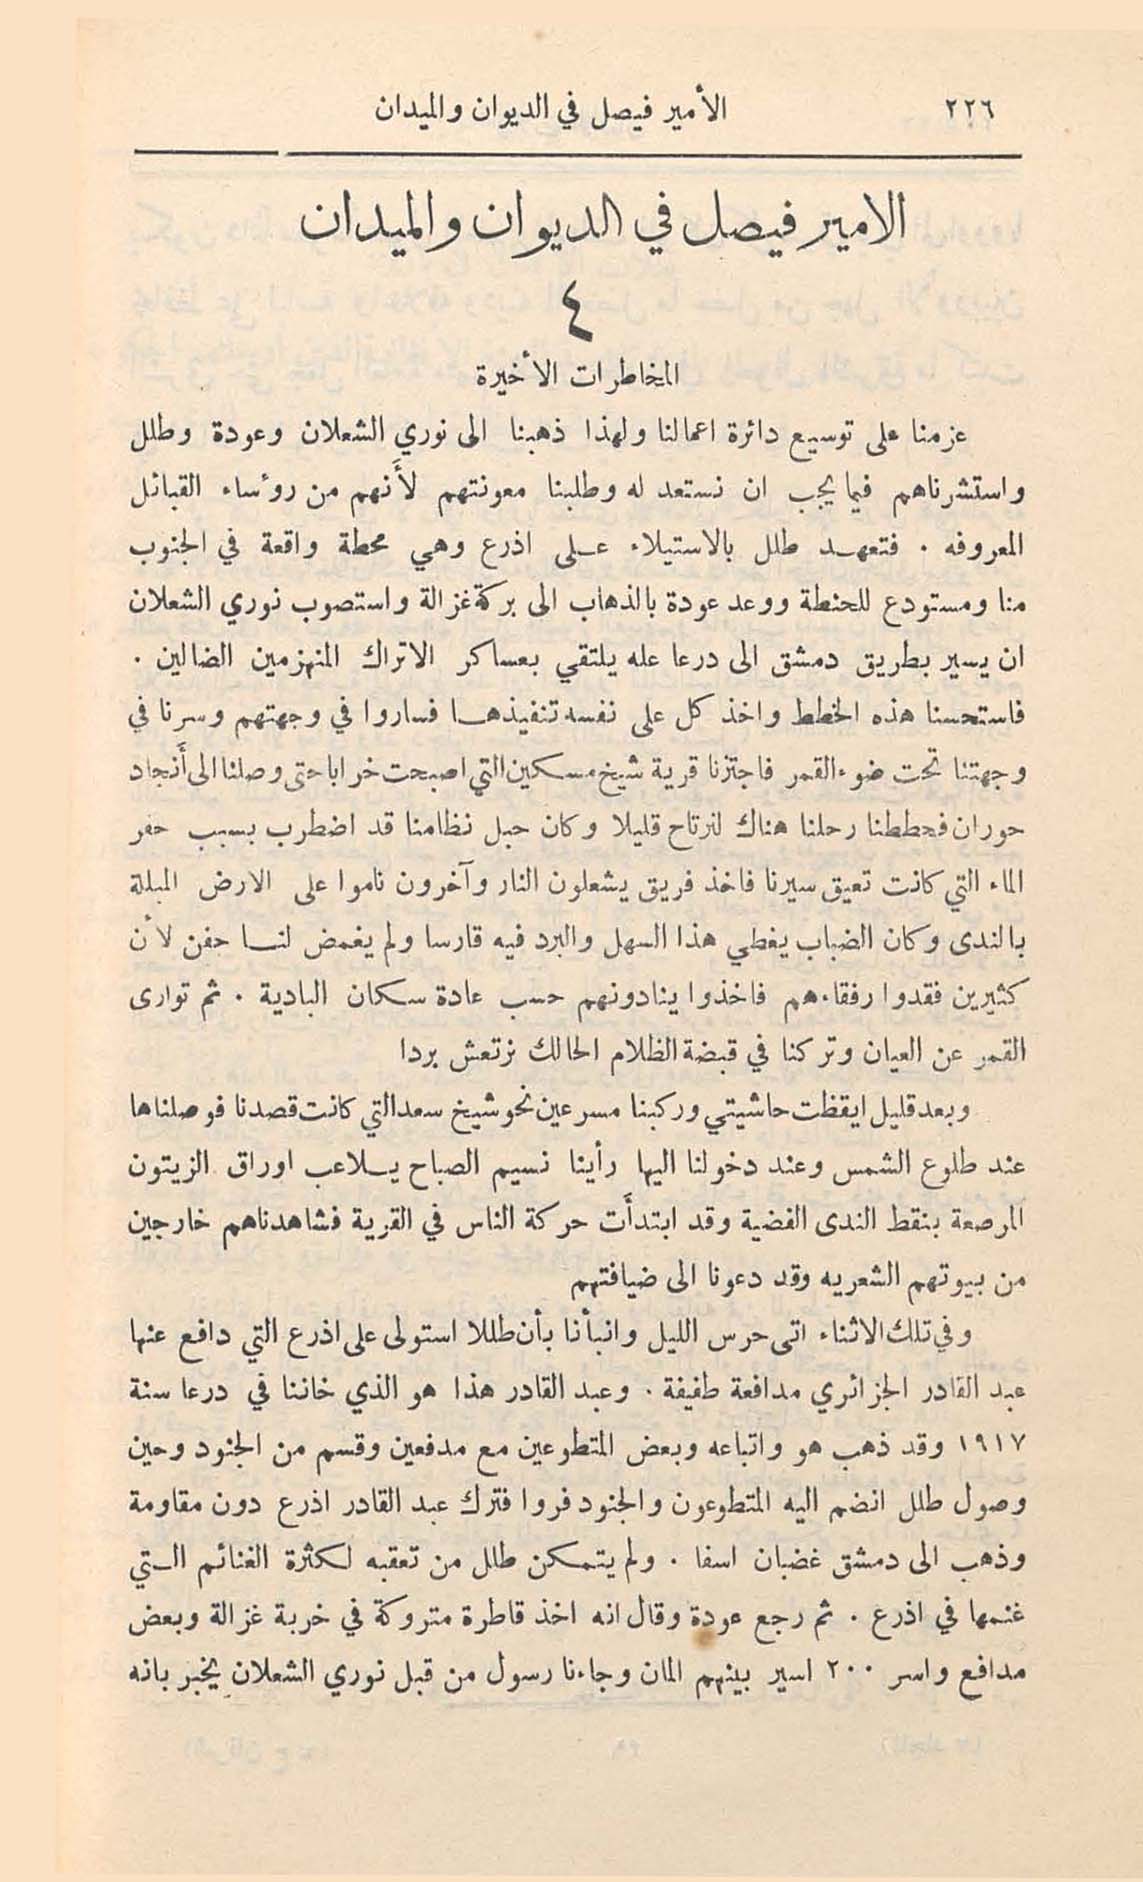 ٢٢٦
الأمير فيصل في الديوان والميدان
الامير فيصل في الديوان والميدان
٤
المخاطرات الأخيرة
عزمنا على توسيع دائرة اعمالنا ولهذا ذهبنا الى نوري الشعلان وعودة وطلل
واستشرناهم فيما يجب ان نستعد له وطلبنا معونتهم لأَنهم من روءساء القبائل
المعروفه . فتعهد طلل بالاستيلاء على اذرع وهي محطة واقعة في الجنوب
منا ومستودع للحنطة ووعد عودة بالذهاب الى بركة غزالة واستصوب نوري الشعلان
ان يسير بطريق دمشق الى درعا عله يلتقي بعساكر الاتراك المنهزمين الضالين .
فاستحسنا هذه الخطط واخذ كل على نفسه تنفيذها فساروا في وجهتهم وسرنا في
وجهتنا تحت ضوء القمر فاجتزنا قرية شيخ مسكين التي اصبحت خرابا حتى وصلنا الى أَنجاد
حوران فحططنا رحلنا هناك لنرتاح قليلا وكان حبل نظامنا قد اضطرب بسبب حفر
الماء التي كانت تعيق سيرنا فاخذ فريق يشعلون النار وآخرون ناموا على الارض المبللة
بالندى وكان الضباب يغطي هذا السهل والبرد فيه قارسا ولم يغمض لنا جفن لأن
كثيرين فقدوا رفقاءهم فاخذوا ينادونهم حسب عادة سكان البادية . ثم توارى
القمر عن العيان وتركنا في قبضة الظلام الحالك نرتعش بردا
وبعد قليل ايقظت حاشيتي وركبنا مسرعين نحو شيخ سعد التي كانت قصدنا فوصلناها
عند طلوع الشمس وعند دخولنا اليها رأينا نسيم الصباح يلاعب اوراق الزيتون
المرصعة بنقط الندى الفضية وقد ابتدأَت حركة الناس في القرية فشاهدناهم خارجين
من بيوتهم الشعريه وقد دعونا الى ضيافتهم
وفي تلك الاثناء اتى حرس الليل وانبأنا بأن طللا استولى على اذرع التي دافع عنها
عبد القادر الجزائري مدافعة طفيفة . وعبد القادر هذا هو الذي خاننا في درعا سنة
١٩١٧ وقد ذهب هو واتباعه وبعض المتطوعين مع مدفعين وقسم من الجنود وحين
وصول طلل انضم اليه المتطوعون والجنود فروا فترك عبد القادر اذرع دون مقاومة
وذهب الى دمشق غضبان اسفا . ولم يتمكن طلل من تعقبه لكثرة الغنائم التي
غنمها في اذرع . ثم رجع عودة وقال انه اخذ قاطرة متروكة في خربة غزالة وبعض
مدافع واسر ٢٠٠ اسير بينهم المان وجاءنا رسول من قبل نوري الشعلان يخبر بانه